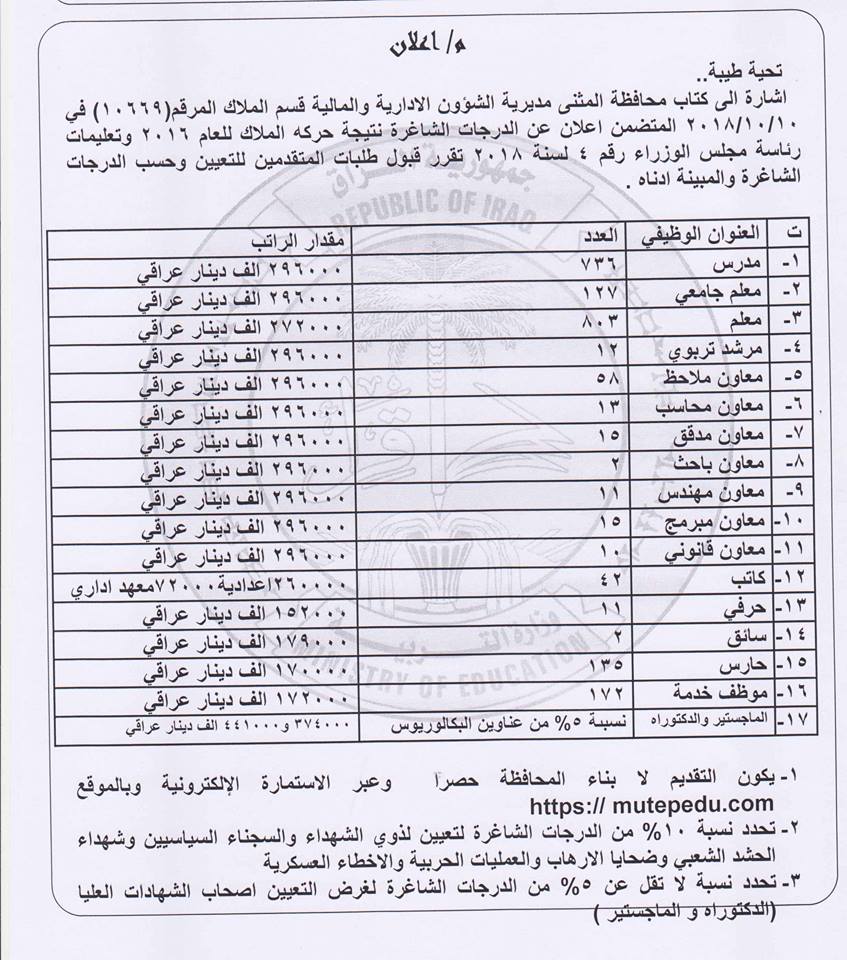 م/ اعلان
تحية طيبة..
اشارة الى كتاب محافظة المثنى مديرية الشؤون الادارية والمالية قسم الملاك المرقم(١٠٦٦٩) في
٢٠١٨/١٠/١٠ المتضمن اعلان عن الدرجات الشاغرة نتيجة حركه الملاك للعام ٢٠١٦ وتعليمات
رئاسة مجلس الوزراء رقم ٤ لسنة ٢٠١٨ تقرر قبول طلبات المتقدمين للتعيين وحسب الدرجات
الشاغرة والمبينة ادناه .
جمهورية العراق
REPUBLIC OF IRAQ
ت العنوان الوظيفي العدد مقدار الراتب
١- مدرس ٧٣٦ ٢٩٦٠٠٠ الف دينار عراقي
٢- معلم جامعي ١٢٧ ٢٩٦٠٠٠ الف دينار عراقي
٣- معلم ٨٠٣ ٢٧٢٠٠٠ الف دينار عراقي
٤- مرشد تربوي ١٢ ٢٩٦٠٠٠ الف دينار عراقي
٥- معاون ملاحظ ٥٨ ٢٩٦٠٠٠ الف دينار عراقي
٦- معاون محاسب ١٣ ٢٩٦٠٠٠ الف دينار عراقي
٧- معاون مدقق ١٥ ٢٩٦٠٠٠ الف دينار عراقي
٨- معاون باحث ٢ ٢٩٦٠٠٠ الف دينار عراقي
٩- معاون مهندس ١١ ٢٩٦٠٠٠ الف دينار عراقي
١٠- معاون مبرمج ١٥ ٢٩٦٠٠٠ الف دينار عراقي
١١- معاون قانوني ١٠ ٢٩٦٠٠٠ الف دينار عراقي
١٢- كاتب ٤٢ ٢٦٠٠٠٠اعدادية٧٢٠٠٠معهد اداري
١٣- حرفي ١١ ١٥٢٠٠٠ الف دينار عراقي
١٤- سائق ٢ ١٧٩٠٠٠ الف دينار عراقي
١٥- حارس ١٣٥ ١٧٠٠٠٠ الف دينار عراقي
١٦- موظف خدمة ١٧٢ ١٧٢٠٠٠ الف دينار عراقي
١٧- الماجستير والدكتوراه نسبة ٥% من عناوين البكالوريوس ٣٧٤٠٠٠ و٤٤١٠٠٠ الف دينار عراقي
وزارة التربية
MINISTRY OF EDUCATION
١- يكون التقديم لا بناء المحافظة حصرا وعبر الاستمارة الإلكترونية وبالموقع
https:// mutepedu.com
٢- تحدد نسبة ١٠% من الدرجات الشاغرة لتعيين لذوي الشهداء والسجناء السياسيين وشهداء
الحشد الشعبي وضحايا الارهاب والعمليات الحربية والاخطاء العسكرية
٣- تحدد نسبة لا تقل عن ٥% من الدرجات الشاغرة لغرض التعيين اصحاب الشهادات العليا
(الدكتوراه و الماجستير )